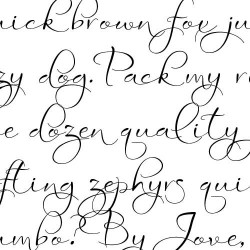 uick brown fox ju
zy dog. Pack my r
e dozen quality
fting zephyrs qui
umbo? By Jove,